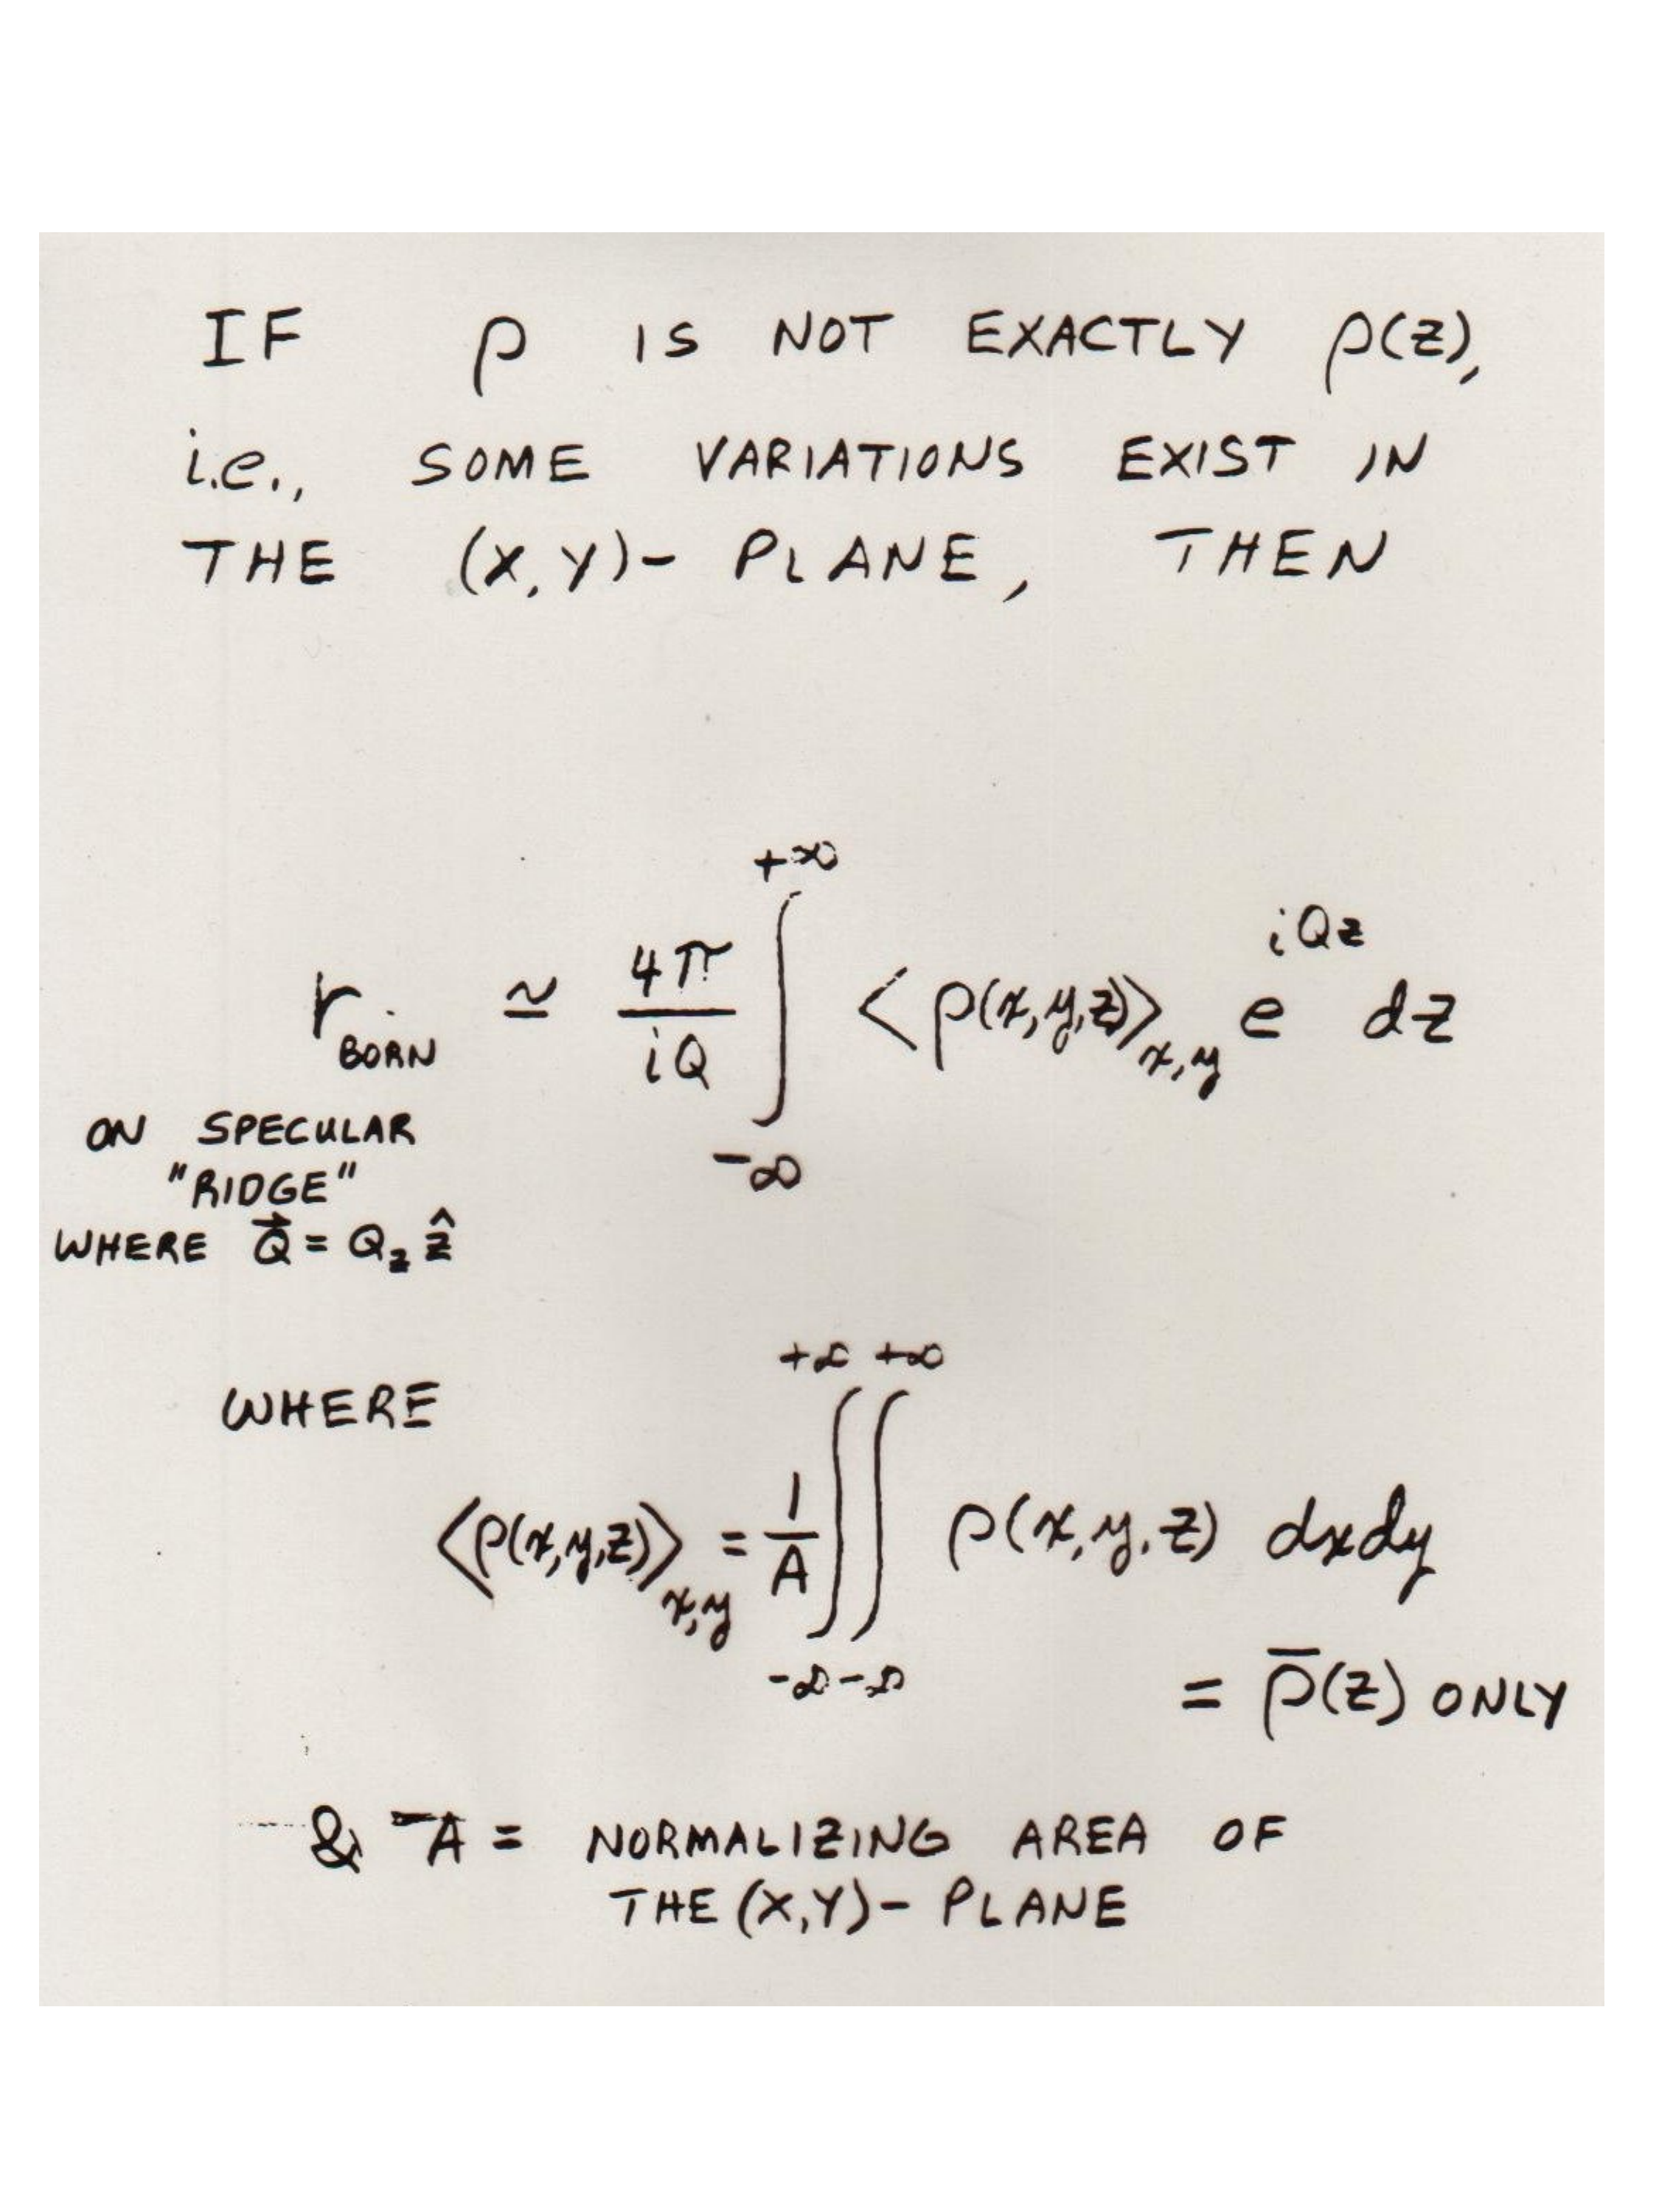 IF ρ IS NOT EXACTLY ρ(z),
i.e., SOME VARIATIONS EXIST IN
THE (X,Y)- PLANE, THEN
r_BORN ≃ 4π/iQ ∫_{-∞}^{+∞} <ρ(x,y,z)>_{x,y} e^{iQz} dz
ON SPECULAR
"RIDGE"
WHERE Q⃗ = Q_z ẑ
WHERE
<ρ(x,y,z)>_{x,y} = 1/A ∫_{-∞}^{+∞} ∫_{-∞}^{+∞} ρ(x,y,z) dxdy
= ρ̄(z) ONLY
& A = NORMALIZING AREA OF
THE (X,Y)- PLANE